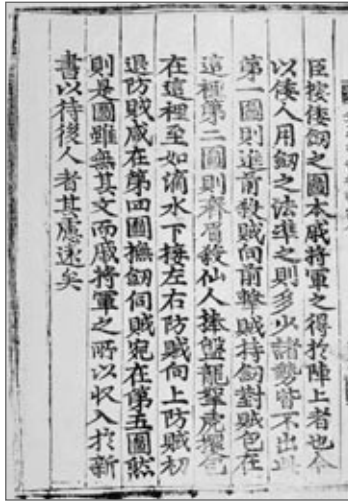 臣按倭劒之圖本戚將軍之得於陣上者也今
以倭人用劒之法準之則多少諸勢皆不出此
第一圖則進前殺賊向前擊賊持劒對賊包在
這裡第二圖則齊眉殺仙人捧盤龍拏虎攫包
在這裡至如滴水下接左右防賊向上防賊初
退防賊咸在第四圖撫劒伺賊宛在第五圖然
則是圖雖無其文而戚將軍之所以收入於新
書以待後人者其慮遠矣